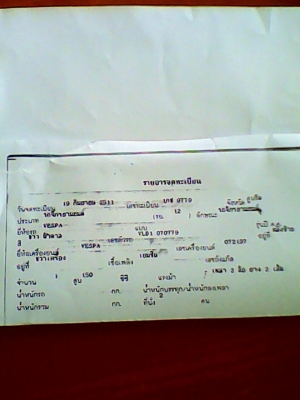 รายการจดทะเบียน
วันจดทะเบียน 19 กันยายน 2511 เลขทะเบียน 9779 จังหวัด ภูเก็ต
ประเภท รถจักรยานยนต์ (รย. 12 ) ลักษณะ รถจักรยานยนต์
ยี่ห้อรถ VESPA แบบ รุ่นปี
สี เลขตัวรถ VLB1 070779 อยู่ที่
ยี่ห้อเครื่องยนต์ VESPA เลขเครื่องยนต์ 072137
อยู่ที่ เชื้อเพลิง เบนซิน เลขถังแก๊ส
จำนวน 1 สูบ 150 ซีซี แรงม้า เพลา 2 ล้อ ยาง 2 เส้น
น้ำหนักรถ กก. น้ำหนักบรรทุก/น้ำหนักลงเพลา
น้ำหนักรวม กก. ที่นั่ง 2 คน